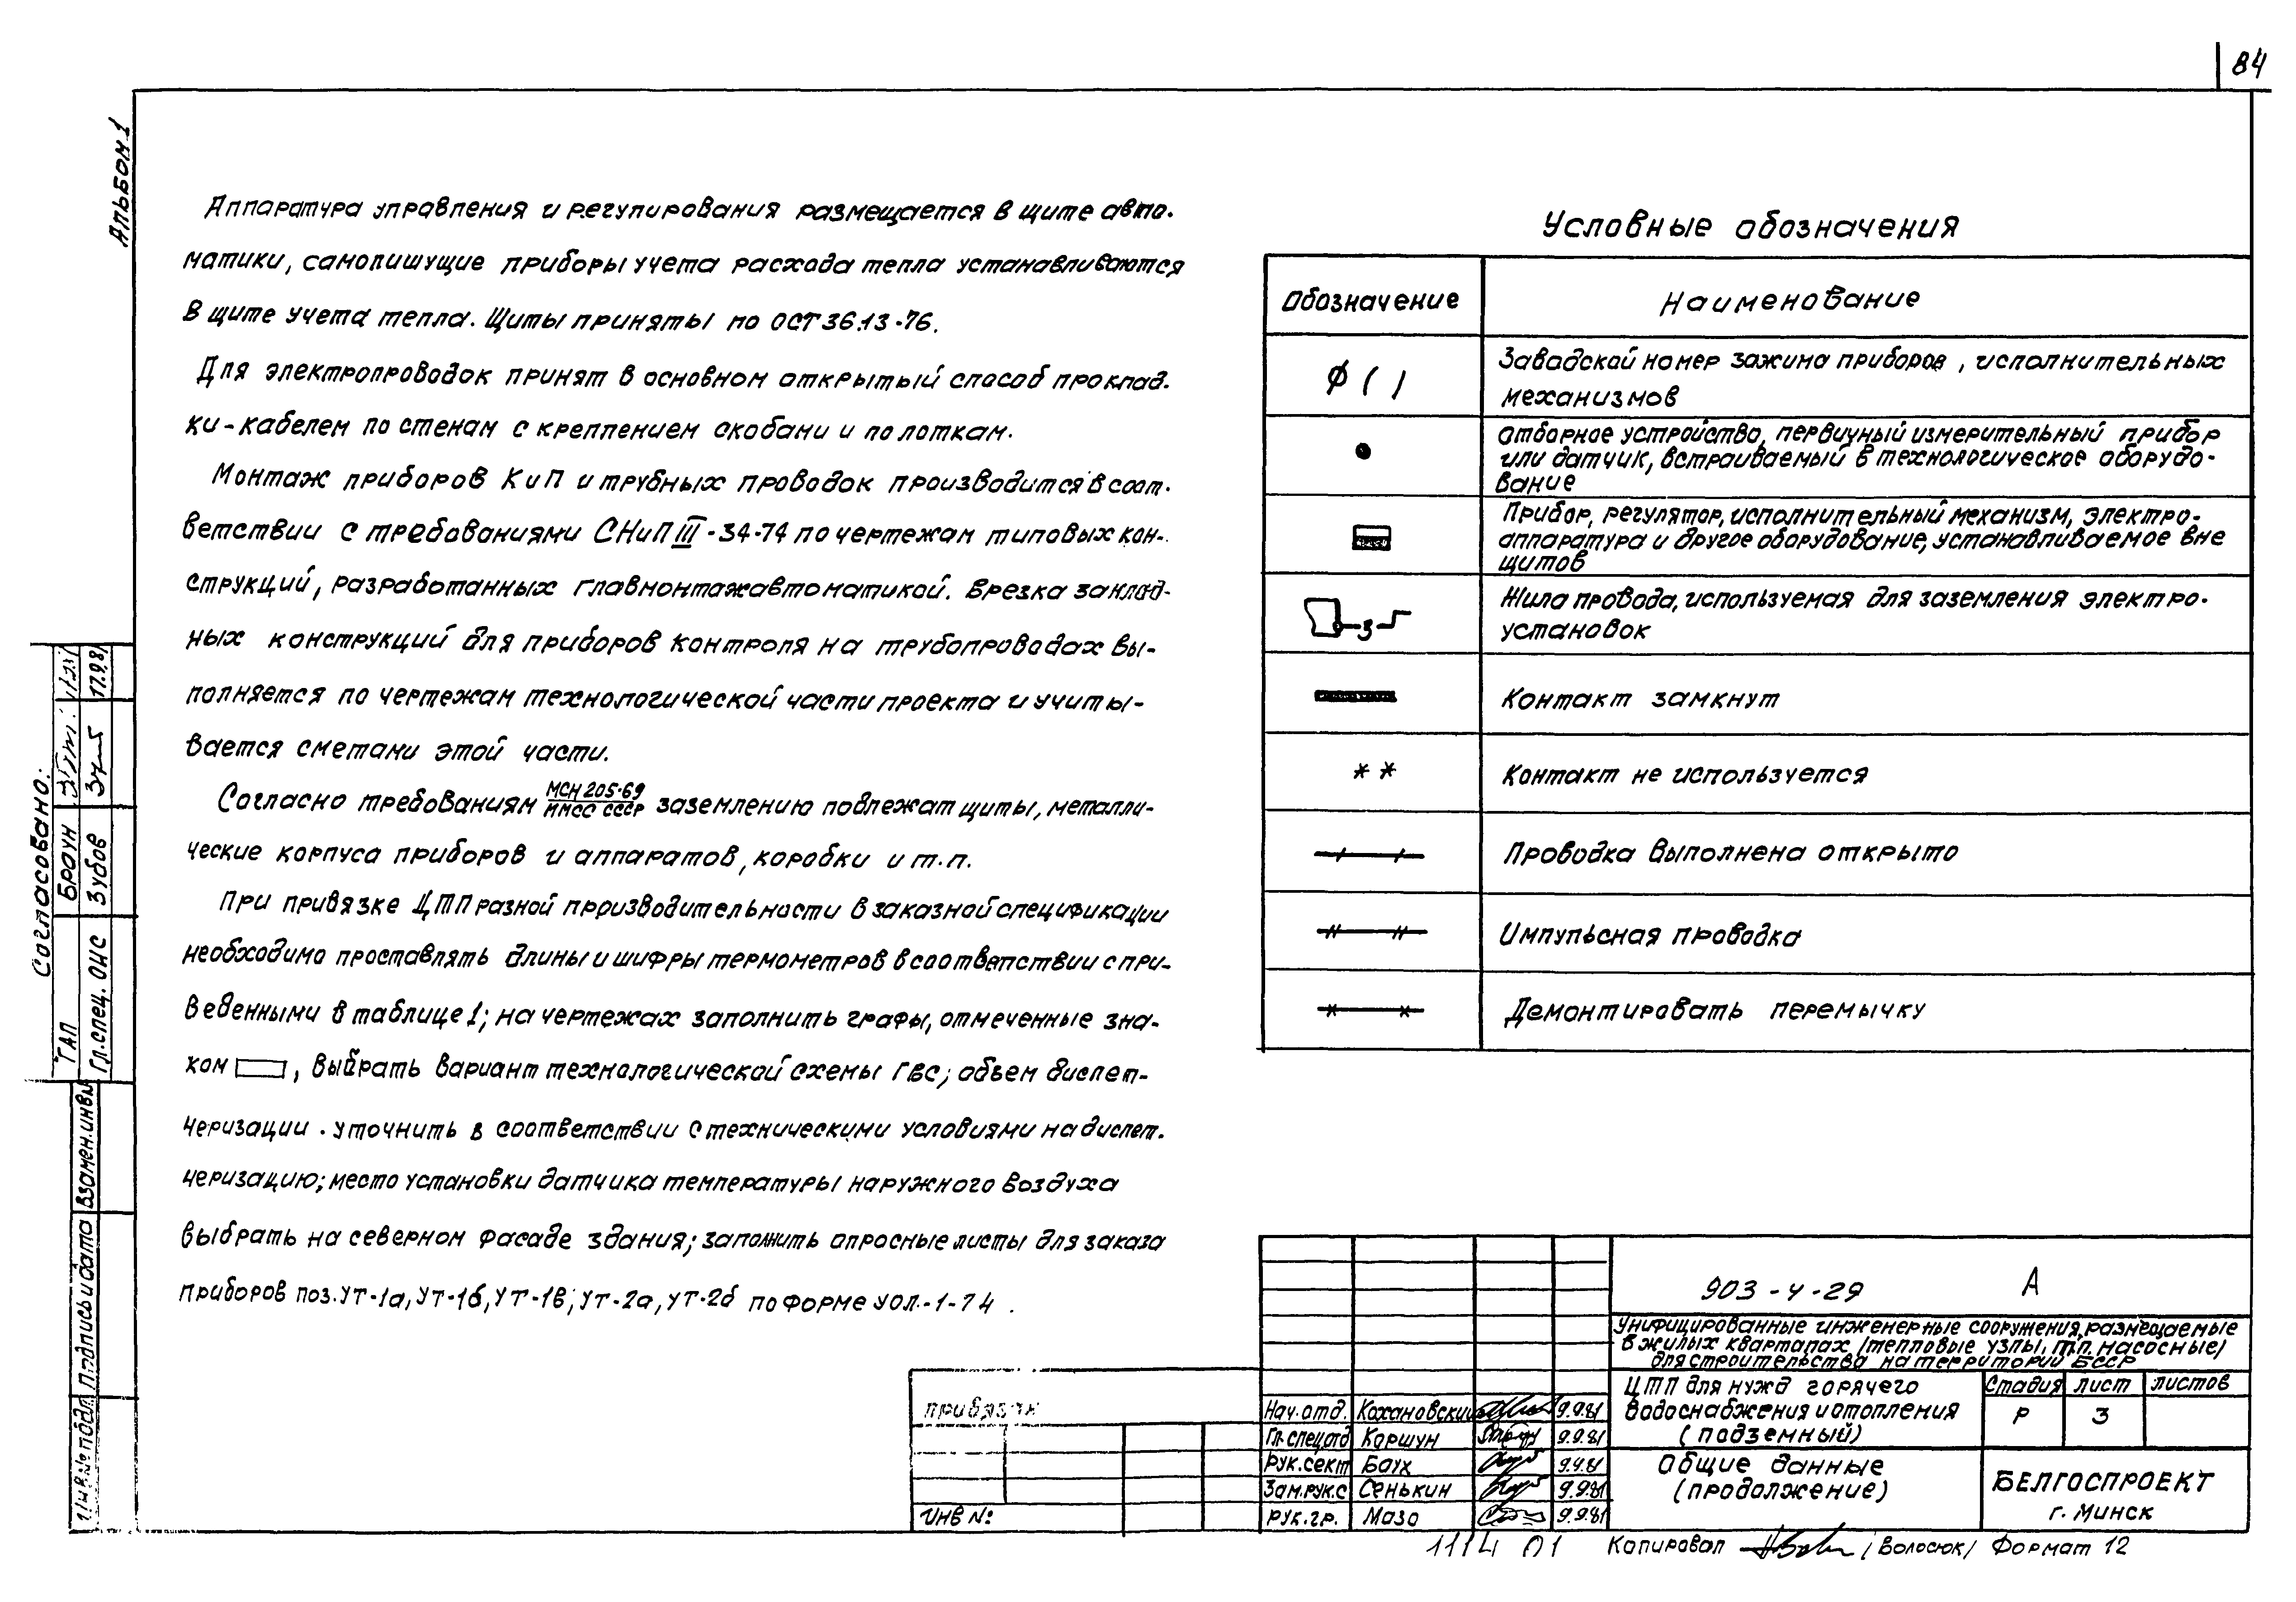 84
Альбом 1
Аппаратура управления и регулирования размещается в щите авто-
матики, самопишущие приборы учета расхода тепла устанавливаются
в щите учета тепла. Щиты приняты по ОСТ 36.13-76.
Для электропроводок принят в основном открытый способ проклад-
ки-кабелем по стенам с креплением скобами и по лоткам.
Монтаж приборов КиП и трубных проводок производится в соот-
ветствии с требованиями СНиП III-34-74 по чертежам типовых кон-
струкций, разработанных главмонтажавтоматикой. Врезка заклад-
ных конструкций для приборов контроля на трубопроводах вы-
полняется по чертежам технологической части проекта и учиты-
вается сметами этой части.
Согласно требованиям МСН 205-69 / ММСС СССР заземлению подлежат щиты, металли-
ческие корпуса приборов и аппаратов, коробки и т.п.
При привязке ЦТП разной производительности в заказной спецификации
необходимо проставлять длины и шифры термометров в соответствии с при-
веденными в таблице 1; на чертежах заполнить графы, отмеченные зна-
ком , выбрать вариант технологической схемы ГВС; объем диспет-
черизации . уточнить в соответствии с техническими условиями на диспет-
черизацию; место установки датчика температуры наружного воздуха
выбрать на северном фасаде здания; заполнить опросные листы для заказа
приборов поз. УТ-1а, УТ-1б, УТ-1в; УТ-2а, УТ-2б по форме УОЛ-1-74 .
Условные обозначения
Обозначение Наименование
ϕ ( ) Заводской номер зажима приборов , исполнительных
механизмов
Отборное устройство, первичный измерительный прибор
или датчик, встраиваемый в технологическое оборудо-
вание
Прибор, регулятор, исполнительный механизм, электро-
аппаратура и другое оборудование, устанавливаемое вне
щитов
З Жила провода, используемая для заземления электро-
установок
Контакт замкнут
* * Контакт не используется
Проводка выполнена открыто
Импульсная проводка
Демонтировать перемычку
Согласовано:
ГАП Браун
Гл.спец. ОНС Зубов 17.9.81
Взамен.инв.№
Подпись и дата
Инв.№ подл.
привязан
Инв №:
903-4-29 А
Унифицированные инженерные сооружения, размещаемые
в жилых кварталах /тепловые узлы, т.п. насосные/
для строительства на территории БССР
ЦТП для нужд горячего
водоснабжения и отопления
(подземный)
Стадия лист листов
Р 3
Нач.отд. Кохановский 9.9.81
Гл.спец.отд Коршун 9.9.81
Рук.сект Баух 9.9.81
Зам.рук.с Сенькин 9.9.81
Рук.гр. Мазо 9.9.81
Общие данные
(продолжение)
БЕЛГОСПРОЕКТ
г. Минск
1114 01 Копировал /Волосюк/ Формат 12